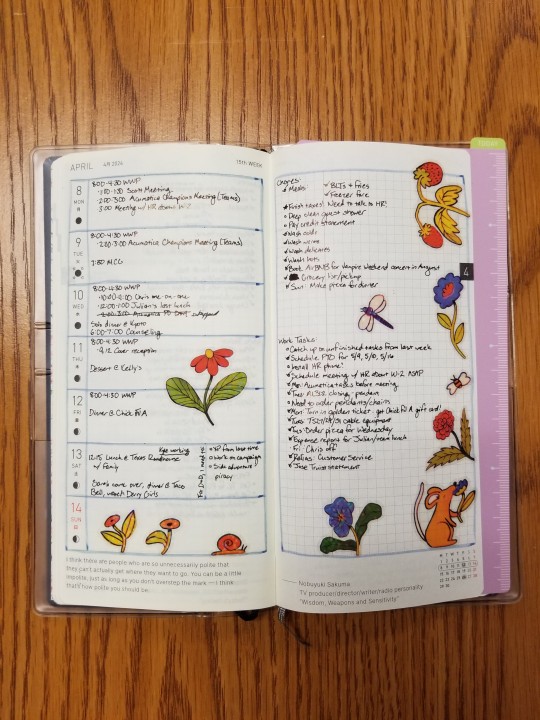 APRIL 4月 2024 15TH WEEK
8 MON
8:00-4:30 WWP
1:00-1:30 Scott Meeting
2:00-3:00 Acumatica Champions Meeting (Teams)
3:00 Meeting w/ HR about W-2
9 TUE
8:00-4:30 WWP
2:00-3:00 Acumatica Champions Meeting (Teams)
7:30 MCG
10 WED
8:00-4:30 WWP
Chris one-on-one
12:00-1:00 Julian's last lunch
Solo dinner @ Kyoto
6:00-7:00 Counseling
11 THU
8:00-4:30 WWP
9-12 Cover reception
Dessert @ Kelly's
12 FRI
8:00-4:30 WWP
Dinner @ Chick Fil A
13 SAT
Kyle working
12:15 Lunch @ Texas Roadhouse
w/ Family
Sarah came over, dinner @ Taco
Bell, watch Derry Girls
For D+D, I need to:
XP from last time
Work on campaign
Side adventure
piracy
14 SUN
I think there are people who are so unnecessarily polite that
they can't actually get where they want to go. You can be a little
impolite, just as long as you don't overstep the mark — I think
that's how polite you should be.
TODAY
Chores:
Meals
BLTs + fries
Freezer fare
Finish taxes! Need to talk to HR!
Deep clean guest shower
Pay credit statement
Wash colds
Wash warms
Wash delicates
Wash hots
Book AirBNB for Vampire Weekend concert in August
Grocery list/pickup
Sun: Make pizza for dinner
4
Work Tasks:
Catch up to unfinished tasks from last week
Schedule PTO for 5/9, 5/10, 5/16
Install HR phone!
Schedule meeting w/ HR about W-2 ASAP
Mon: Acumatica tasks before meeting
Tues: closing, pendant
Need to order pendants/chairs
Mon: Turn in golden ticket - get Chick Fil A gift card!
Tues: cable equipment
Tues: Order pizza for Wednesday
Expense reports for Julian/team lunch
Fri: Chris off
Customer Service
statement
M T W T F S S
1 2 3 4 5 6 7
8 9 10 11 12 13 14
15 16 17 18 19 20 21
22 23 24 25 26 27 28
29 30
Nobuyuki Sakuma
TV producer/director/writer/radio personality
"Wisdom, Weapons and Sensitivity"